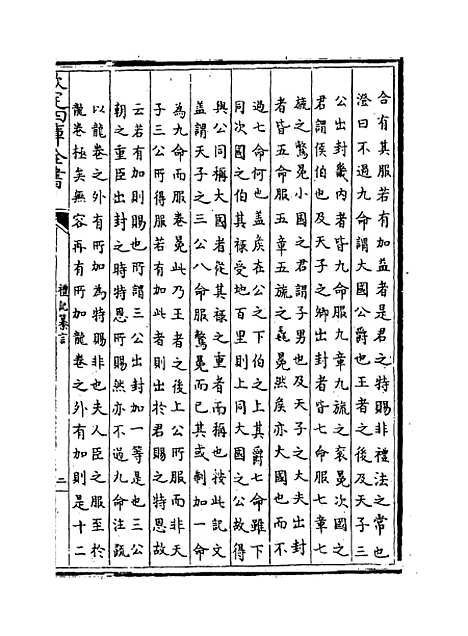 合有其服若有加益者是君之特賜非禮法之常也
澄曰不過九命謂大國公爵也王者之後及天子三
公出封畿內者皆九命服九章九旒之衮冕次國之
君謂侯伯也及天子之卿出封者皆七命服七章七
旒之鷩冕小國之君謂子男也及天子之大夫出封
者皆五命服五章五旒之毳冕然侯亦大國也而不
過七命何也蓋侯在公之下伯之上其爵七命雖下
同次國之伯其祿受地百里則上同大國之公故得
與公同稱大國者從其祿之重者而稱也按此記文
蓋謂天子之三公八命服鷩冕而已其或制加一命
為九命而服卷冕此乃王者之後上公所服而非天
子三公所得服若有加此者則出於君賜之特恩故
云若有加則賜也所謂三公出封加一等是也三公
朝之重臣出封之時特恩所賜然亦不過九命注疏
以龍卷之外有所加為特賜非也夫人臣之服至於
龍卷極矣無容再有所加龍卷之外有加則是十二
欽定四庫全書
禮記纂言
二